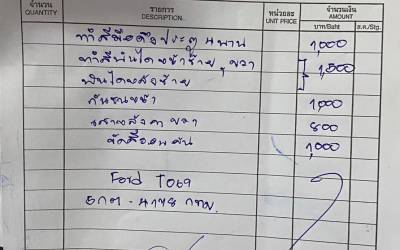 จำนวน รายการ หน่วยละ จำนวนเงิน
QUANTITY DESCRIPTION UNIT PRICE AMOUNT
บาท/Baht ส.ต./Stg.
ทำสีมือดึงประตู 4 บาน 1,000
ทำสีบันไดหน้าซ้าย, ขวา 1,500
บันไดหลังซ้าย
กันชนหน้า 1,000
ขวา 800
ขัดสี 1,000
Ford T069
กทม.